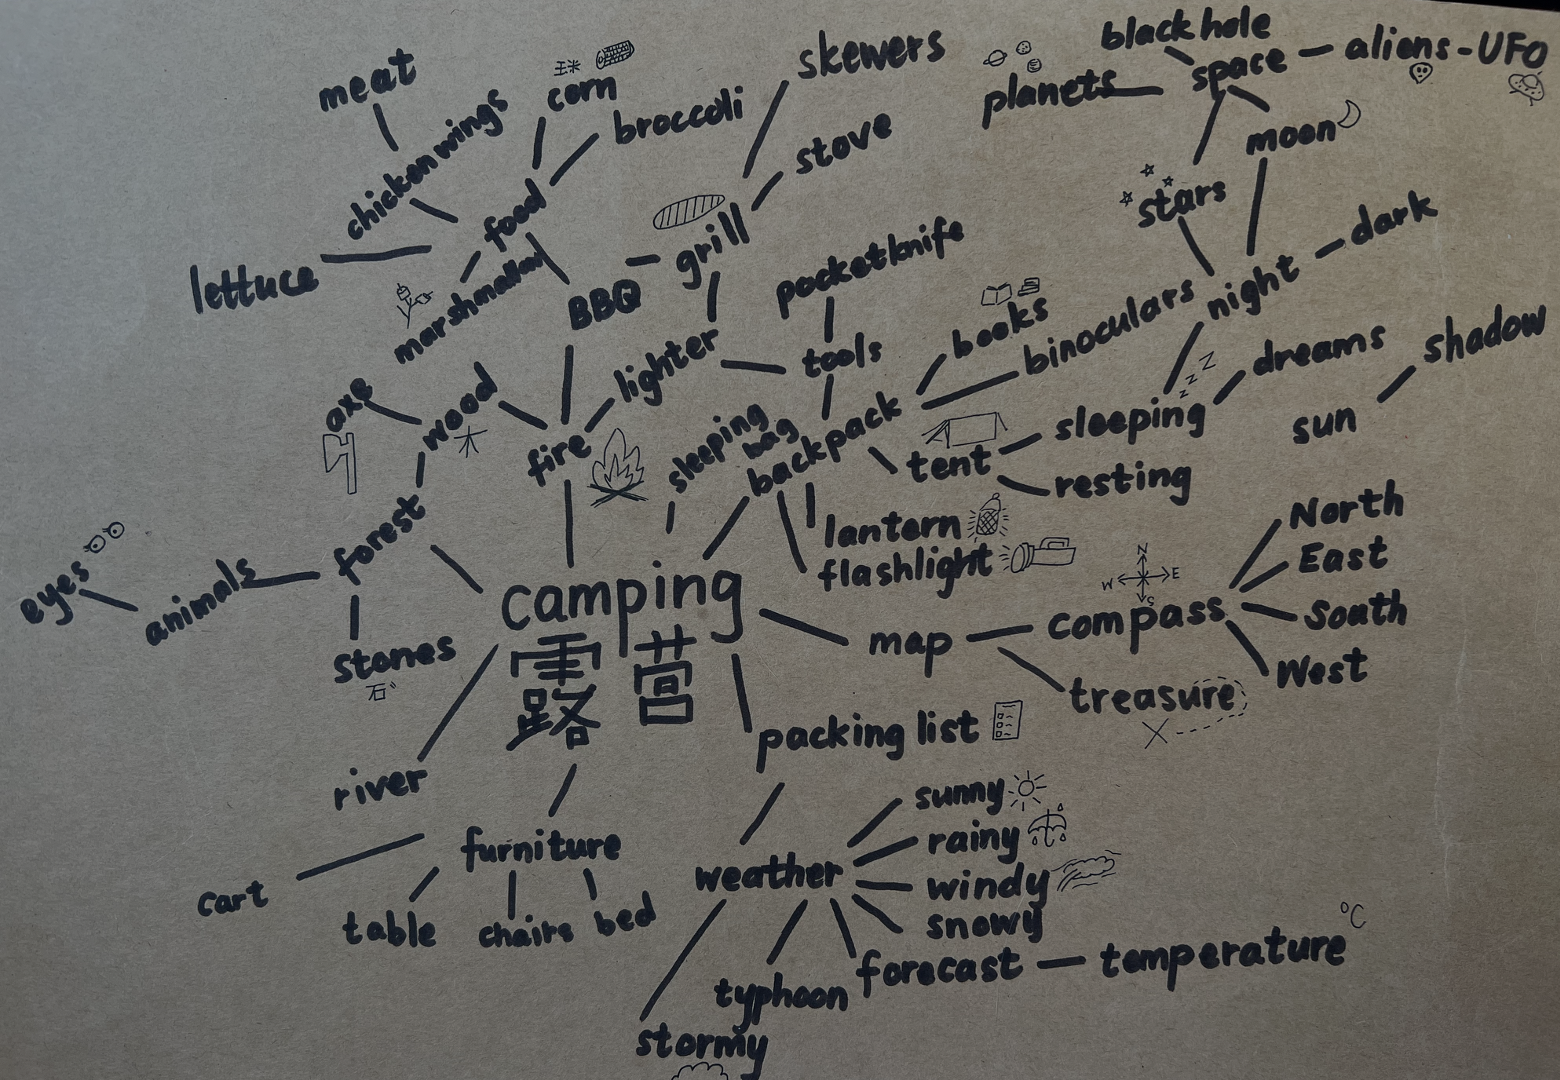 black hole
skewers
space
aliens-UFO
meat
玉米
corn
planets
chicken wings
broccoli
stove
moon
stars
food
grill
dark
lettuce
pocketknife
night
marshmallow
BBQ
books
binoculars
lighter
tools
dreams
shadow
axe
wood
木
backpack
zzz
sleeping
sun
sleeping
bag
fire
tent
resting
North
forest
lantern
East
flashlight
N
W
E
S
eyes
animals
camping
露营
South
compass
map
stones
石
West
treasure
packing list
river
sunny
furniture
rainy
weather
windy
cart
table
chairs
bed
snowy
°C
forecast
temperature
typhoon
stormy